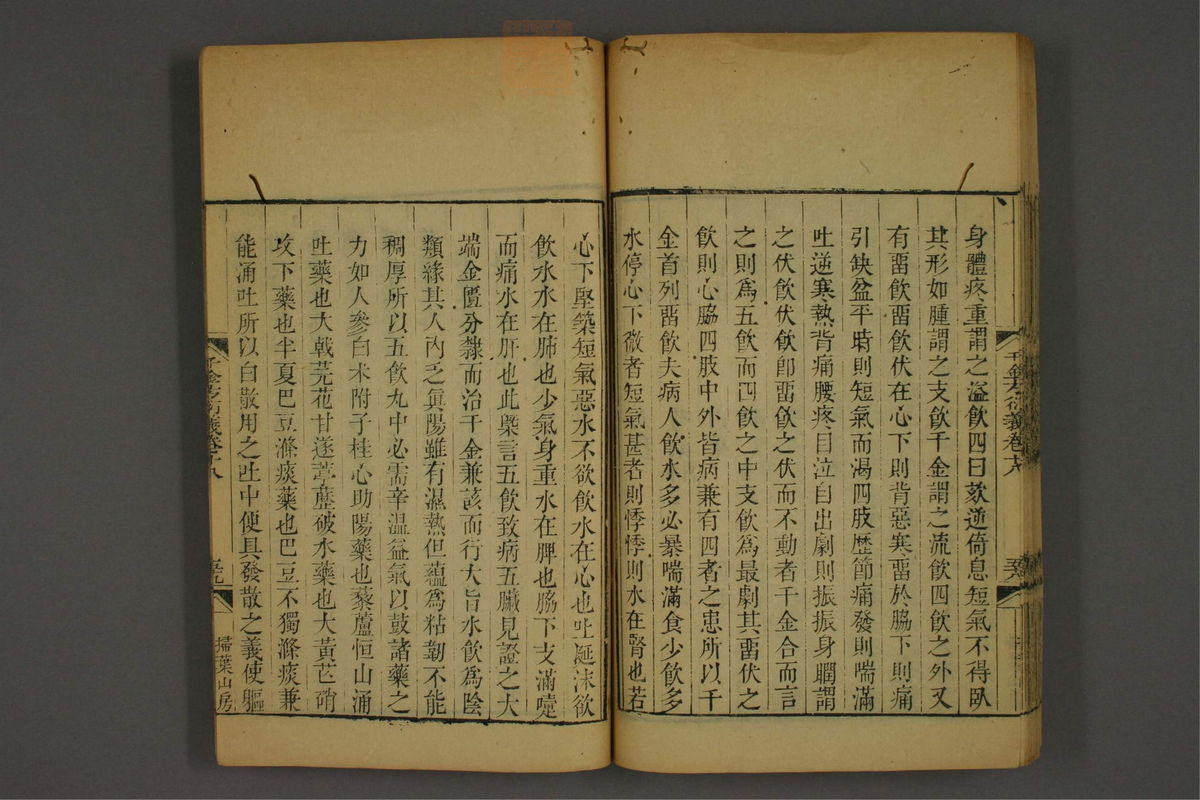 身體疼重謂之溢飲四曰欬逆倚息短氣不得臥
其形如腫謂之支飲千金謂之流飲四飲之外又
有畱飲畱飲伏在心下則背惡寒畱於脇下則痛
引缺盆平時則短氣而渴四肢歷節痛發則喘滿
吐逆寒熱背痛腰疼目泣自出劇則振振身瞤謂
之伏飲伏飲卽畱飲之伏而不動者千金合而言
之則爲五飲而四飲之中支飲爲最劇其畱伏之
飲則心脇四肢中外皆病兼有四者之患所以千
金首列畱飲夫病人飲水多必暴喘滿食少飲多
水停心下微者短氣甚者則悸悸則水在腎也若
心下堅築短氣惡水不欲飲水在心也吐涎沫欲
飲水水在肺也少氣身重水在脾也脇下支滿嚏
而痛水在肝也此槩言五飲致病五臟見證之大
端金匱分隸而治千金兼該而行大旨水飲爲陰
類緣其人內乏眞陽雖有濕熱但蘊爲粘韌不能
稠厚所以五飲丸中必需辛溫益氣以鼓諸藥之
力如人參白朮附子桂心助陽藥也藜蘆恒山涌
吐藥也大戟芫花甘遂葶藶破水藥也大黃芒硝
攻下藥也半夏巴豆滌痰藥也巴豆不獨滌痰兼
能涌吐所以白散用之吐中便具發散之義使軀
千金方衍義卷十八
掃葉山房